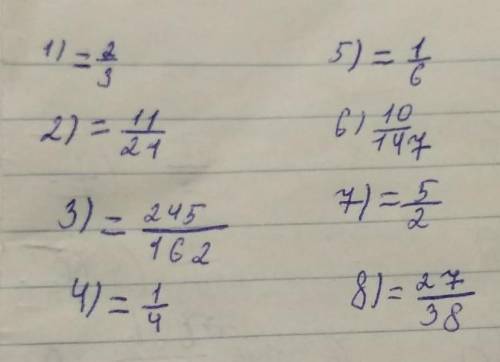 1) = 2/3
2) = 11/21
3) = 245/162
4) = 1/4
5) = 1/6
6) 10/147
7) = 5/2
8) = 27/38